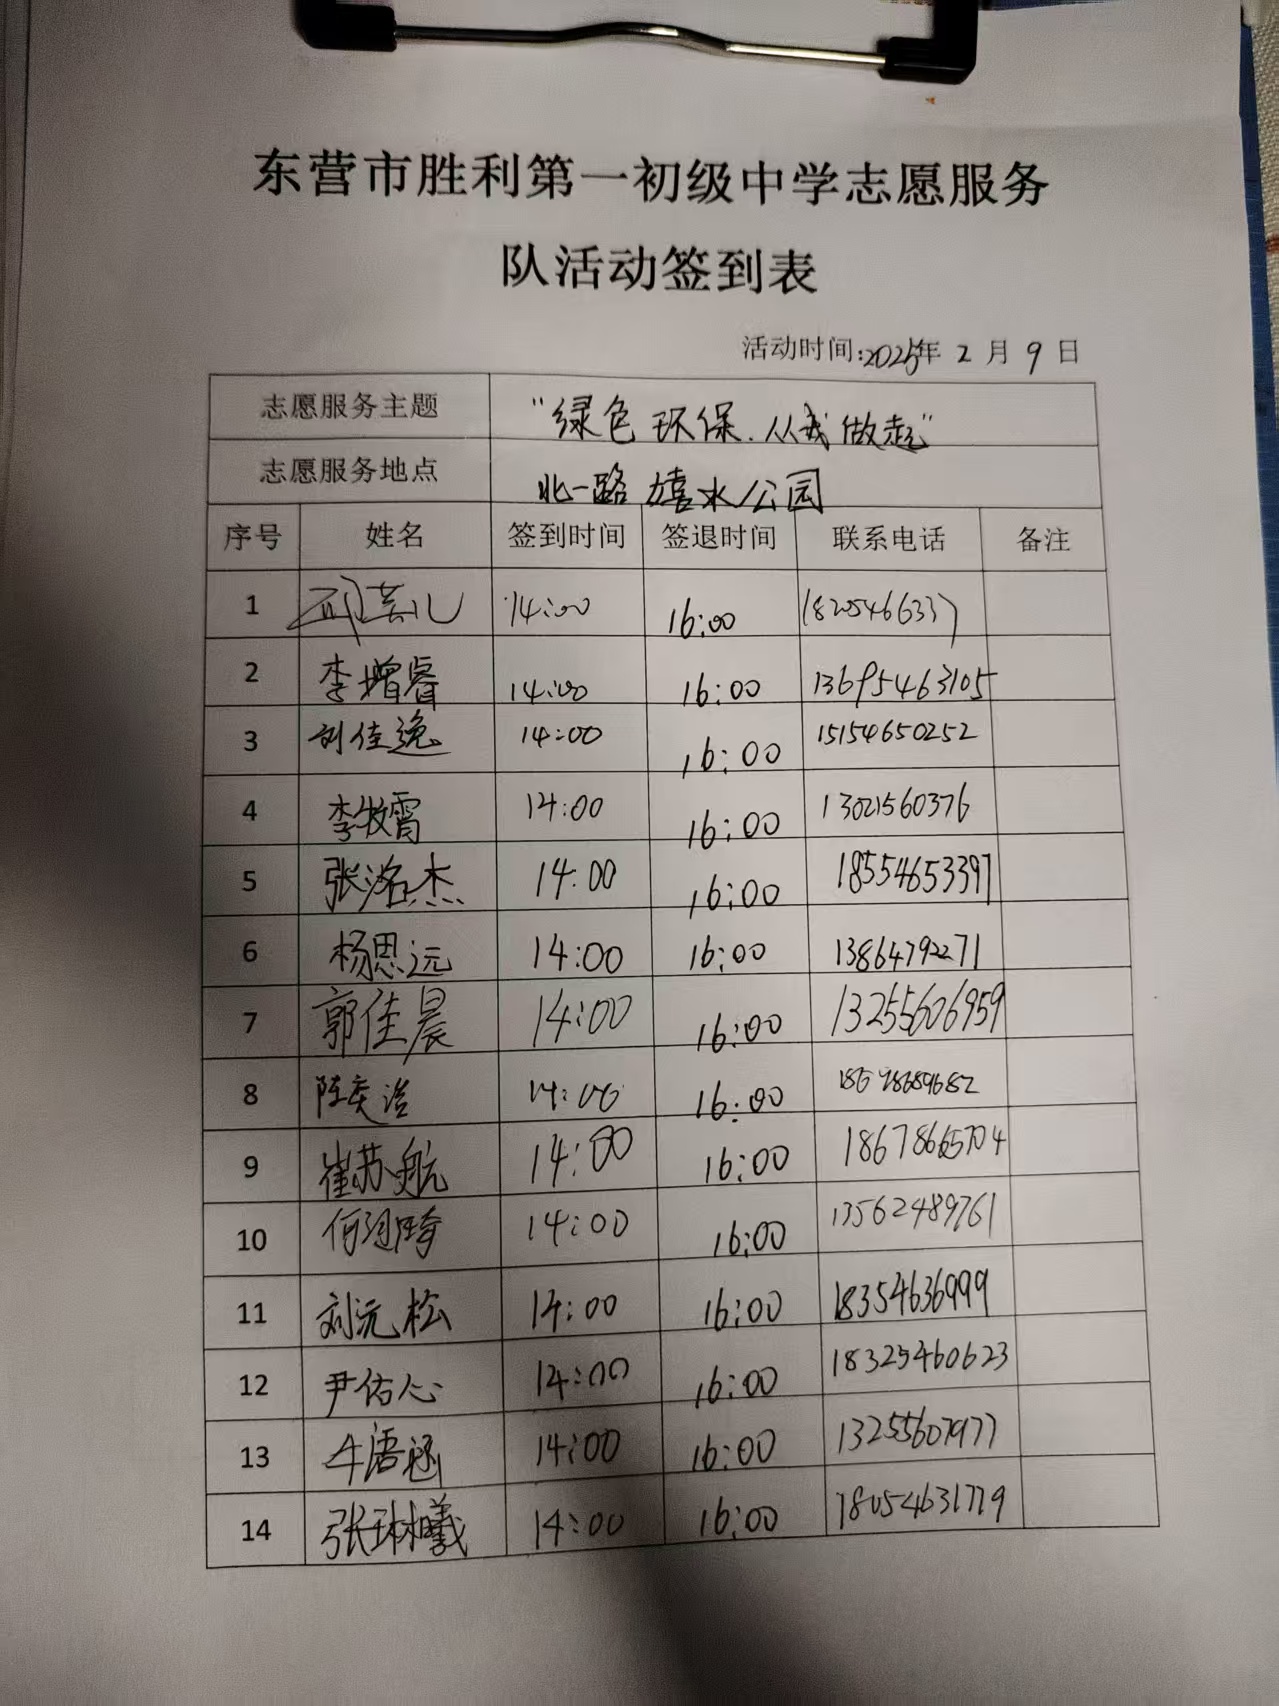 东营市胜利第一初级中学志愿服务
队活动签到表
活动时间:2025年 2 月 9 日
志愿服务主题 "绿色环保.从我做起"
志愿服务地点 北一路嬉水公园
序号 姓名 签到时间 签退时间 联系电话 备注
1 14:00 16:00 18205466337
2 李增睿 14:00 16:00 13695463105
3 刘佳逸 14:00 16:00 15154650252
4 李牧霄 14:00 16:00 13021560376
5 张洺杰 14:00 16:00 18554653397
6 杨思远 14:00 16:00 13864792271
7 郭佳晨 14:00 16:00 13255606959
8 陈奕诺 14:00 16:00
9 崔苏航 14:00 16:00 18678665704
10 14:00 16:00 13562489761
11 刘沅松 14:00 16:00 18354636999
12 尹佑心 14:00 16:00 18325460623
13 牛语涵 14:00 16:00 13255607977
14 张琳曦 14:00 16:00 18054631779